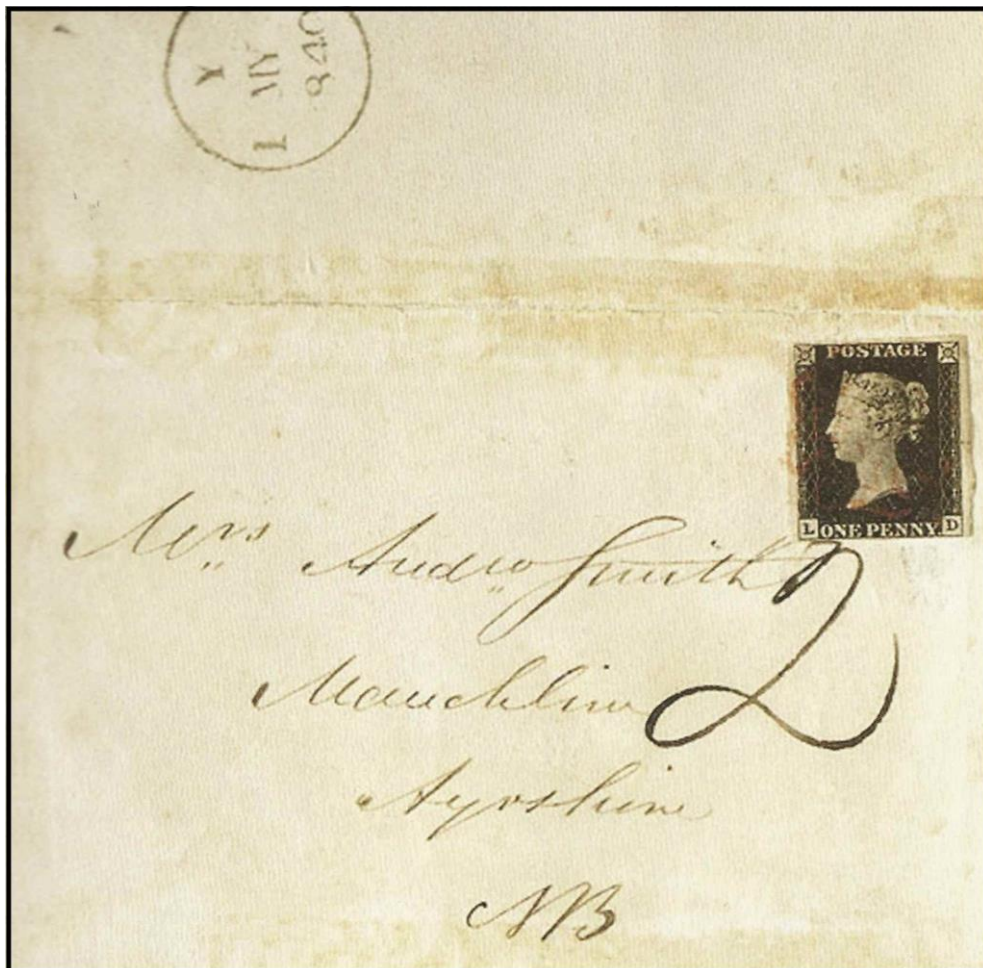 Y
1 MY
840
POSTAGE
L ONE PENNY D
Mrs Andw Smith
2
Mauchline
Ayrshire
NB